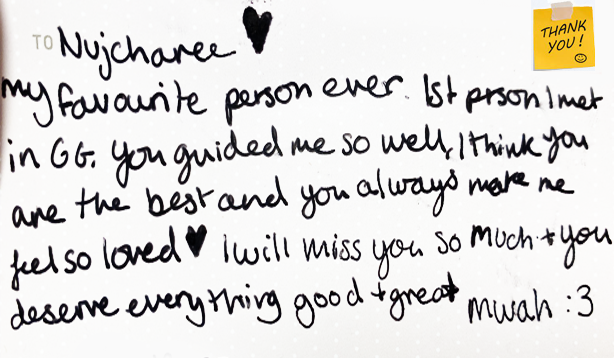 TO Nujcharee ♥
THANK
YOU!
my favourite person ever. 1st prson I met
in GG. You guided me so well, I think you
are the best and you always make me
feel so loved ♥ I will miss you so much + you
deserve everything good + great mwah :3